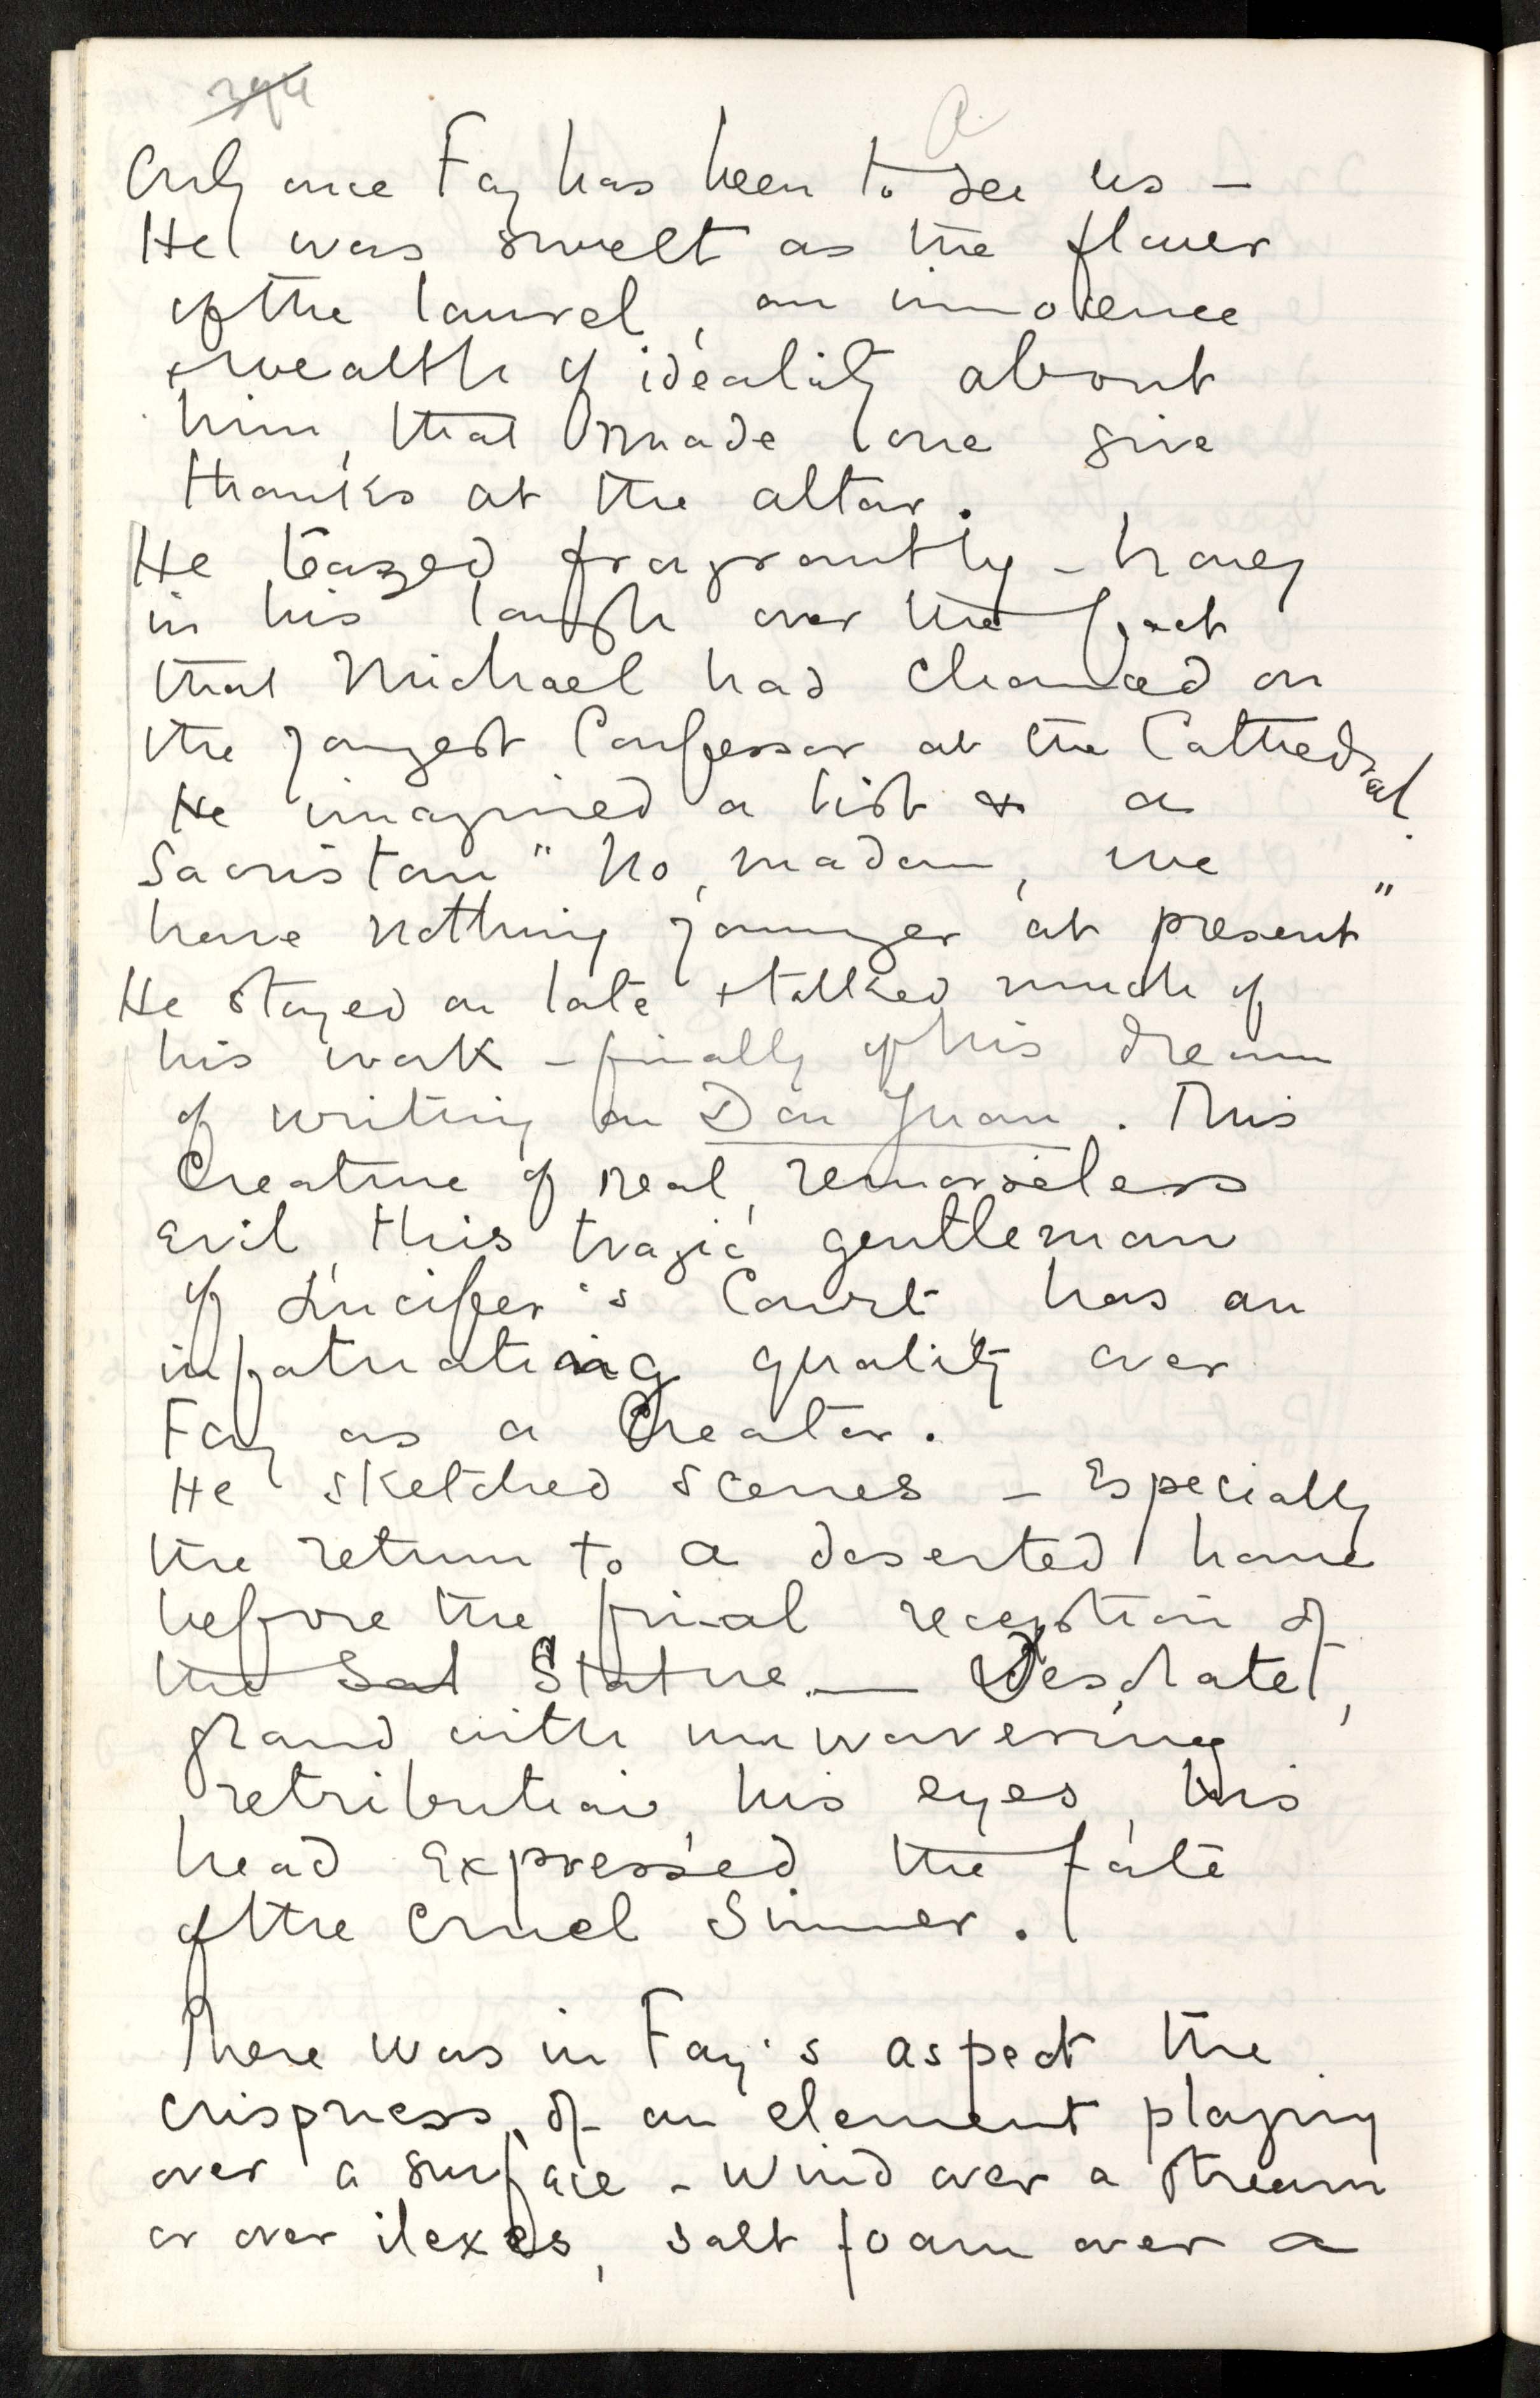 Only once Fay has been to see us –
He was sweet as the flower
of the laurel, an innocence
& wealth of ideality about
him, that made one give
thanks at the altar.
He teazed fragrantly – honey
in his laugh over the fact
that Michael had chanced on
the youngest Confessor at the Cathedral.
He imagined a list & a
Sacristan " No, madam, we
have nothing younger at present"
He stayed on late & talked much of
his work – finally of his dream
of writing on Don Juan. This
Creature of real, remorseless
evil, this tragic gentleman
of Lucifer's Court has an
infatuating quality over
Fay as a Creator.
He sketched scenes – Especially
the return to a deserted home
before the final reception of
the Sat Statue — Desolate,
grand with unwavering
retribution, his eyes, his
head expressed the fate
of the cruel Sinner.
There was in Fay's aspect the
crispness of an element playing
over a surface – wind over a stream
or over ilexes, salt foam over a